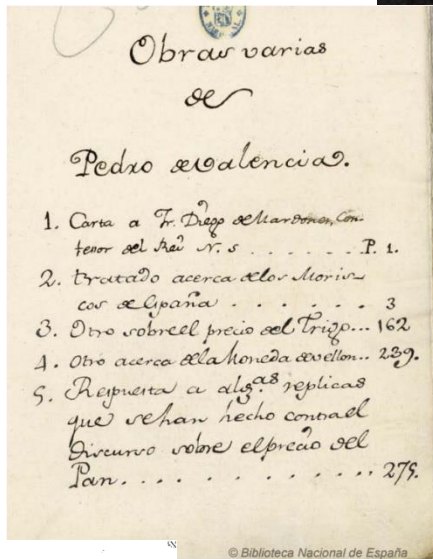 Obras varias
de
Pedro de Valencia.
1. Carta a Fr. Diego de Mardones, Con-
fesor del Rei N. S. . . . . . . P. 1.
2. Tratado acerca de los Moris-
cos de España . . . . . . 3
3. Otro sobre el precio del Trigo... 162
4. Otro acerca de la Moneda de vellon... 239.
5. Respuesta a alg.as replicas
que se han hecho contra el
Discurso sobre el precio del
Pan. . . . . . . . . . . . . 275.
© Biblioteca Nacional de España